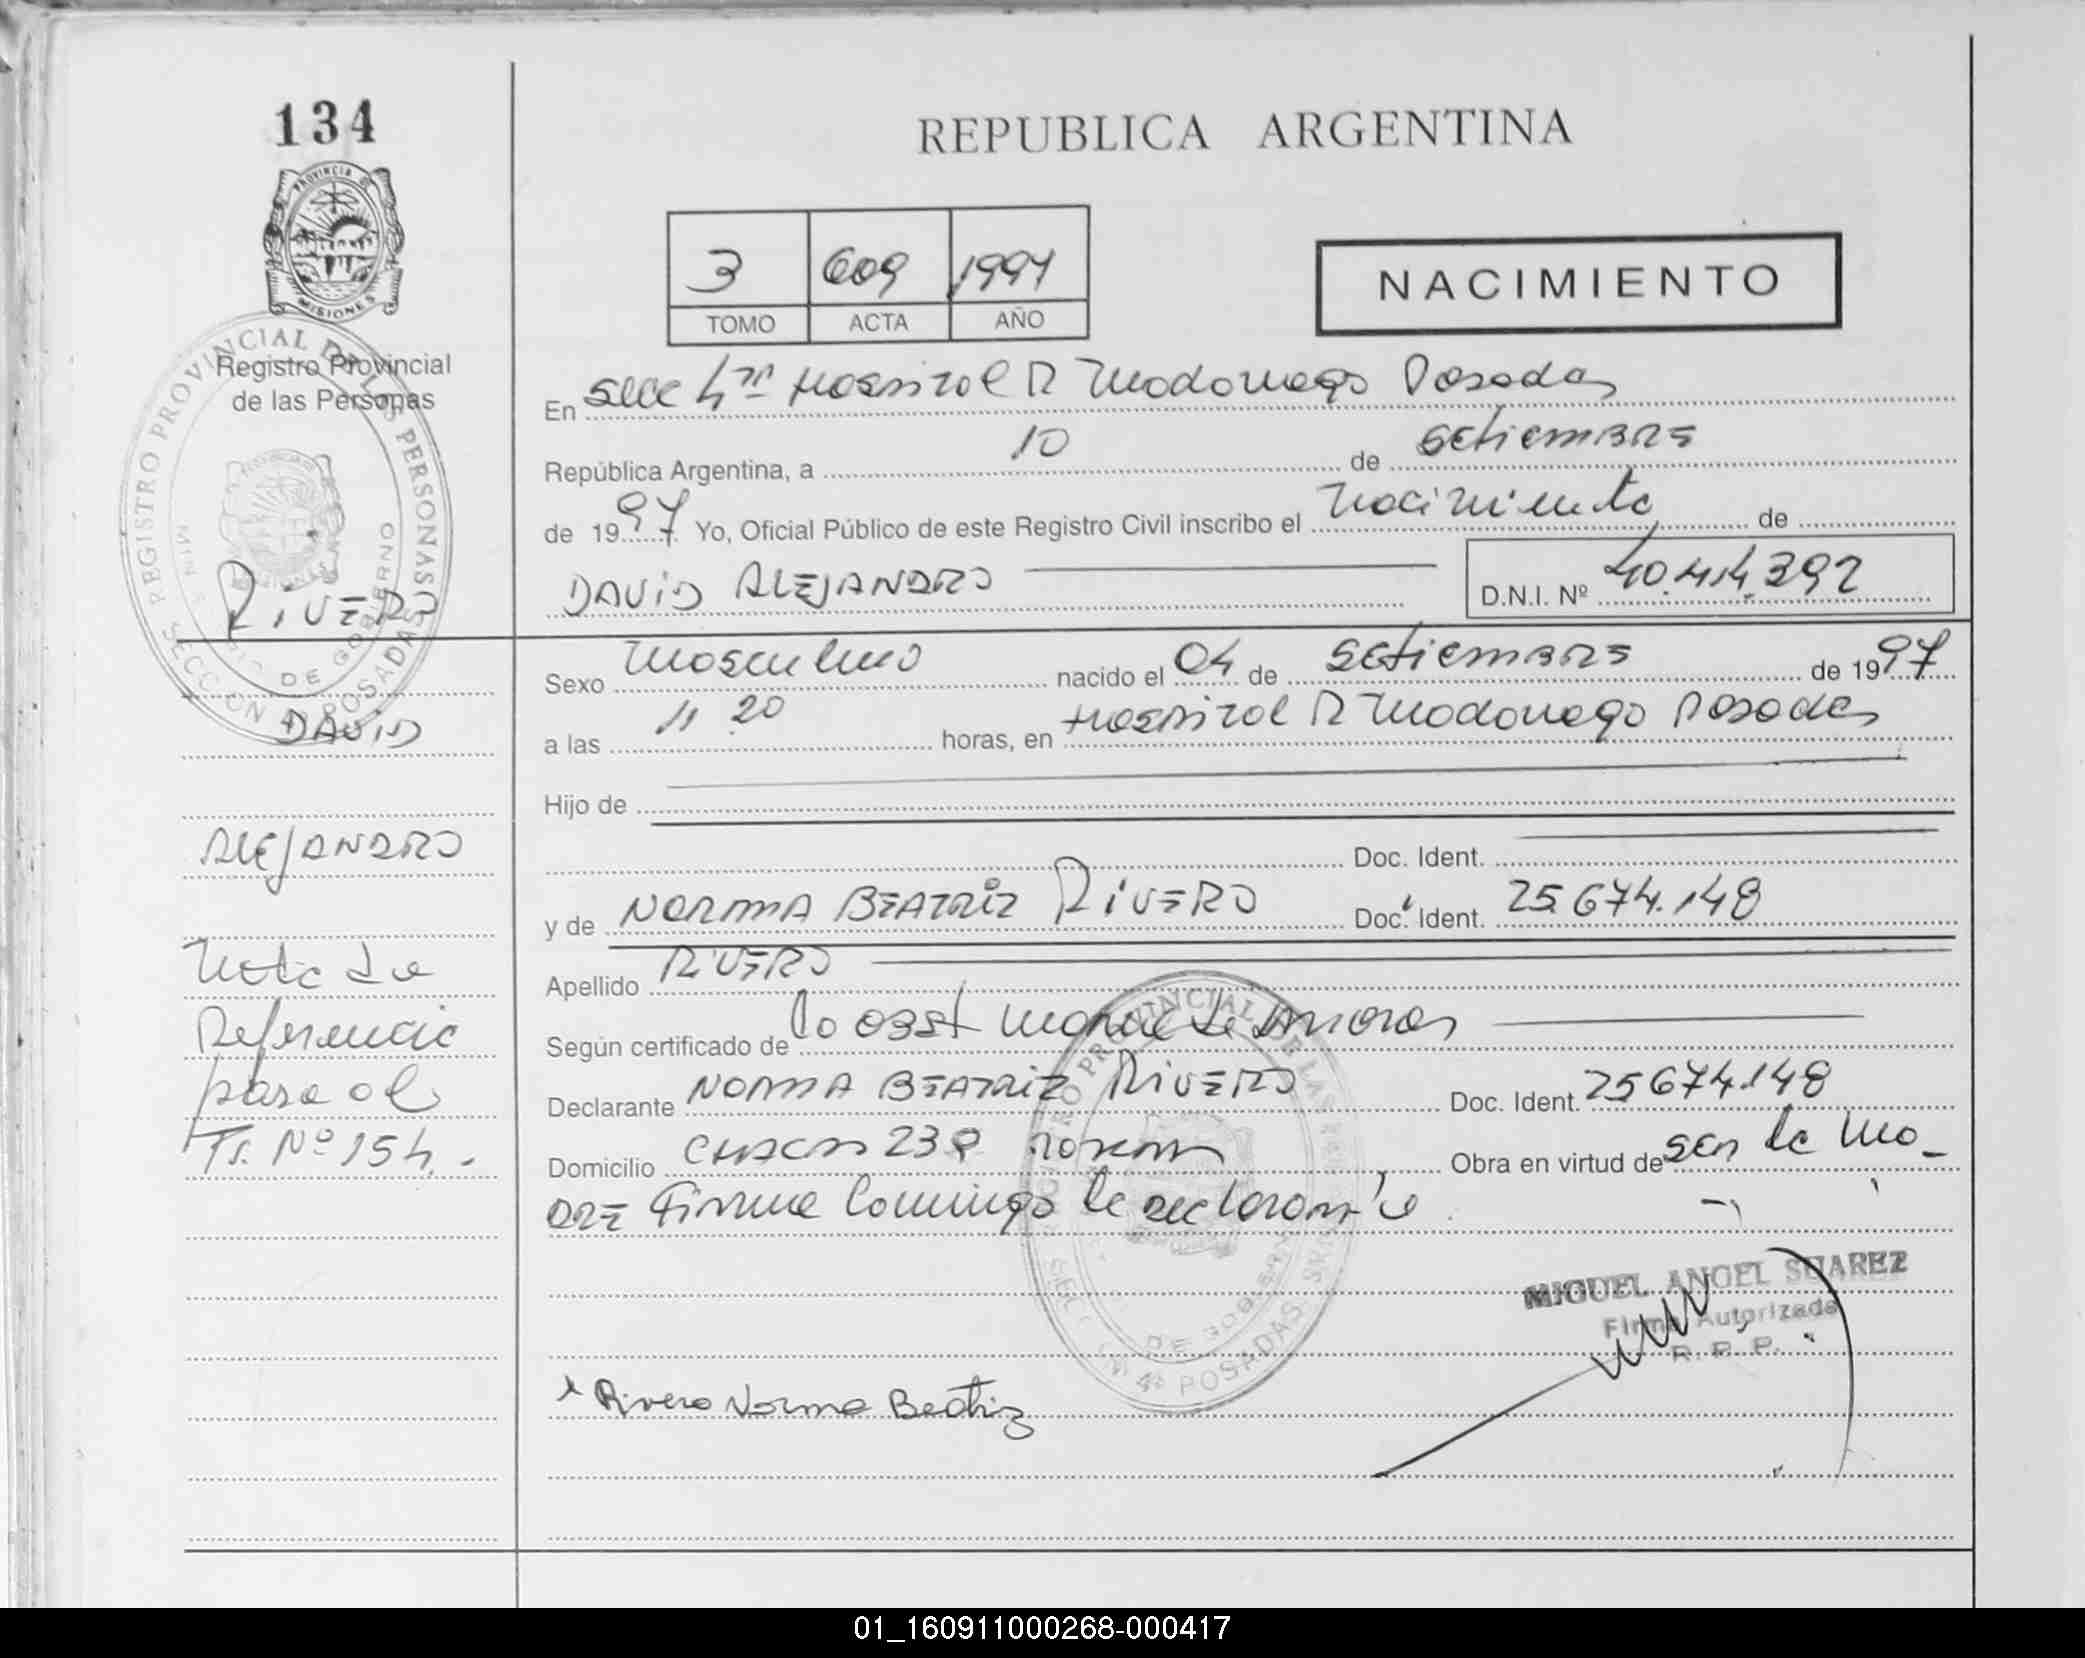 134
REPUBLICA ARGENTINA
PROVINCIA DE
MISIONES
Registro Provincial
de las Personas
3 609 1997
TOMO ACTA AÑO
NACIMIENTO
En Secc 4ta Hospital R Madariaga Posadas
República Argentina, a 10 de setiembre
de 1997 Yo, Oficial Público de este Registro Civil inscribo el nacimiento de
DAVID ALEJANDRO D.N.I. Nº 40.414.392
RIVERO
Sexo Masculino nacido el 04 de setiembre de 1997
a las 11 20 horas, en Hospital R Madariaga Posadas
DAVID
Hijo de
ALEJANDRO
Doc. Ident.
y de NORMA BEATRIZ RIVERO Doc. Ident. 25.674.148
Nota de
Apellido RIVERO
Referencia
Según certificado de la obst
para el
Declarante NORMA BEATRIZ RIVERO Doc. Ident. 25674.148
Tr. Nº 154.
Domicilio CHACO 238 Obra en virtud de ser la ma-
dre Firma conmigo la declarante
MIGUEL ANGEL SUAREZ
Firma Autorizada
R. P. P.
Rivero Norma Beatriz
REGISTRO PROVINCIAL DE LAS PERSONAS
SECCION 4ª POSADAS
DE GOBIERNO
01_160911000268-000417